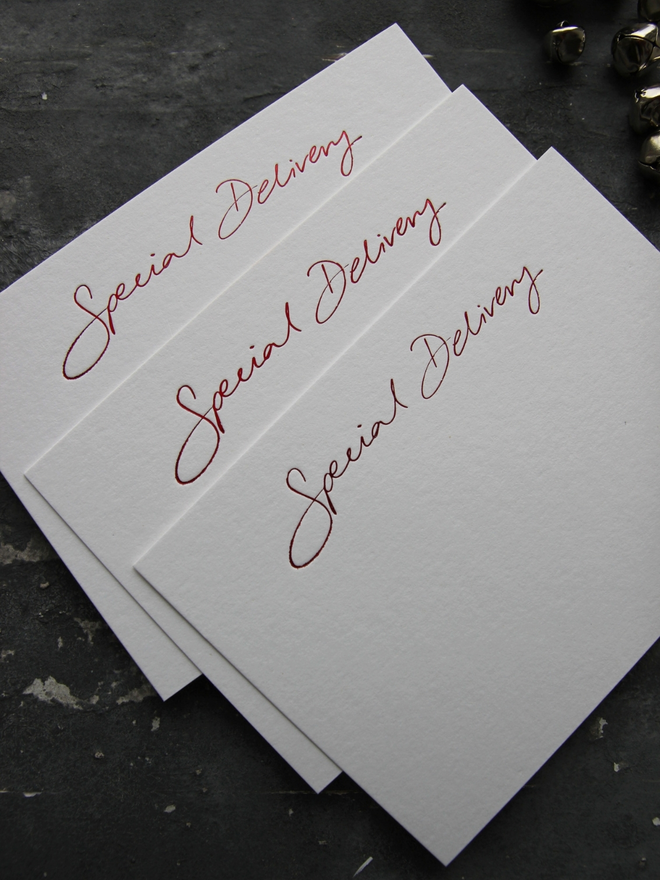 Special Delivery
Special Delivery
Special Delivery